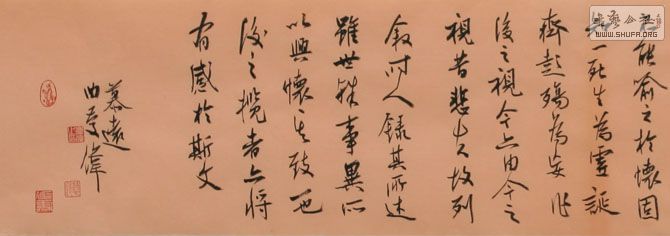 不能喻之於懷固
知一死生為虛誕
齊彭殤為妄作
後之視今亦由今之
視昔悲夫故列
敘時人錄其所述
雖世殊事異所
以興懷其致一也
後之攬者亦將
有感於斯文
慕遠
偉
WWW.SHUFR.ORG